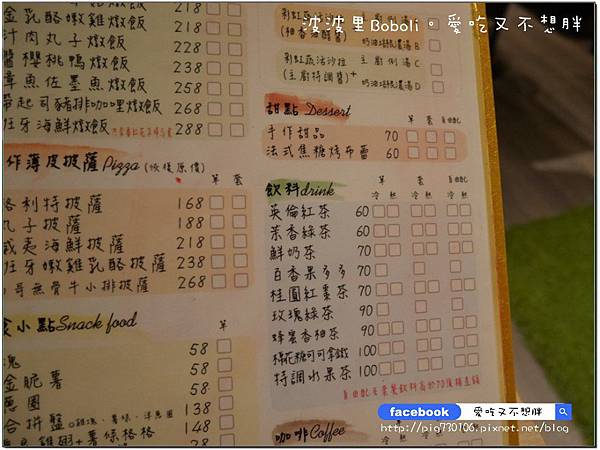 波波里Boboli。愛吃又不想胖
金乳酪嫩雞燉飯 228
汁肉丸子燉飯 218
醬櫻桃鴨燉飯 238
章魚佐墨魚燉飯 258
帶起司豬排咖哩燉飯 268
班牙海鮮燉飯 288
作薄皮披薩Pizza(恢復原價)
單 套
格利特披薩 168
丸子披薩 188
威夷海鮮披薩 218
班牙嫩雞乳酪披薩 238
哥無骨牛小排披薩 268
食小點Snack food
單
塊 58
金脆薯 58
蔥圈 58
合拼盤 148
薯條格格 148
奶油培根濃湯 B
彩虹蔬活沙拉 主廚例湯 C
(主廚特調醬)+ 奶油培根濃湯 D
甜點 Dessert
單 套 自由配
手作甜品 70
法式焦糖烤布蕾 60
飲料drink
單 套 自由配
冷 熱 冷 熱 冷 熱
英倫紅茶 60
茉香綠茶 60
鮮奶茶 70
百香果多多 70
桂圓紅棗茶 70
玫瑰綠茶 90
蜂蜜香柚茶 90
棉花糖可可拿鐵 100
特調水果茶 100
咖啡Coffee
facebook 愛吃又不想胖
http://pig730106.pixnet.net/blog